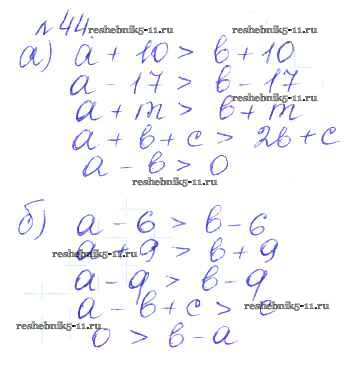 № 44.
reshebnik5-11.ru
а) a + 10 > b + 10
reshebnik5-11.ru
a - 17 > b - 17
reshebnik5-11.ru
a + m > b + m
a + b + c > 2b + c
a - b > 0
reshebnik5-11.ru
б) a - 6 > b - 6
reshebnik5-11.ru
a + 9 > b + 9
reshebnik5-11.ru
a - 9 > b - 9
a - b + c > c
reshebnik5-11.ru
reshebnik5-11.ru
0 > b - a